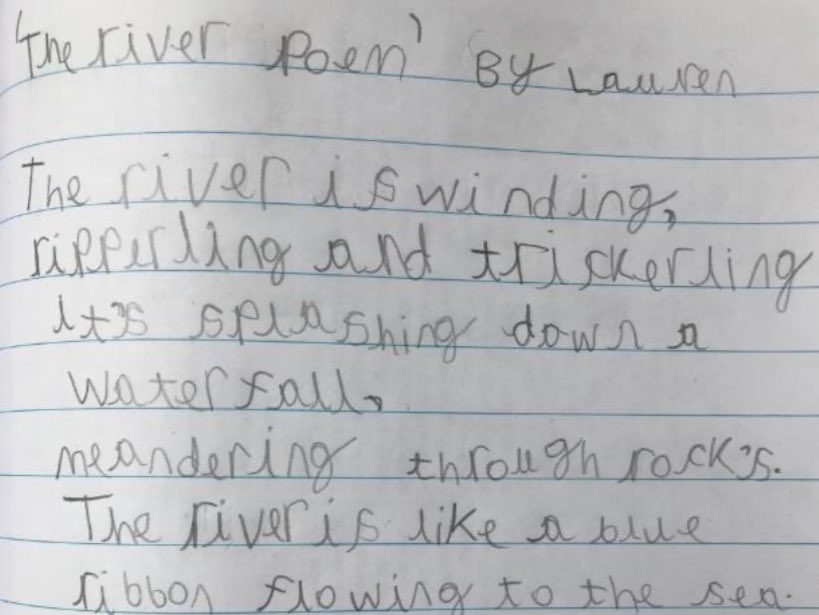 'The river Poem' By Lauren
The river is winding,
ripperling and trickerling
it's splashing down a
waterfall,
meandering through rock's.
The river is like a blue
ribbon flowing to the sea.